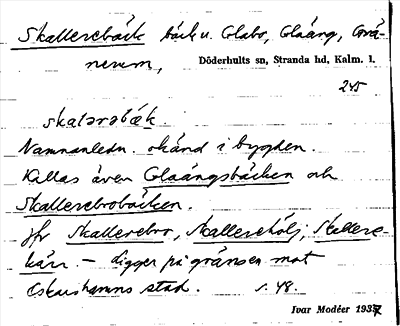 Skallerebäck bäck u. Glabo, Glaäng, Grä-
nerum,
Döderhults sn, Stranda hd, Kalm. l.
245
skalərəbæk.
Namnanledn. okänd i bygden.
Kallas även Glaängsbäcken och
Skallerebrobäcken.
Jfr Skallerebro, Skallerehölj, Skallere-
kärr. – Ligger på gränsen mot
Oskarshamns stad. s. 48.
Ivar Modéer 1937